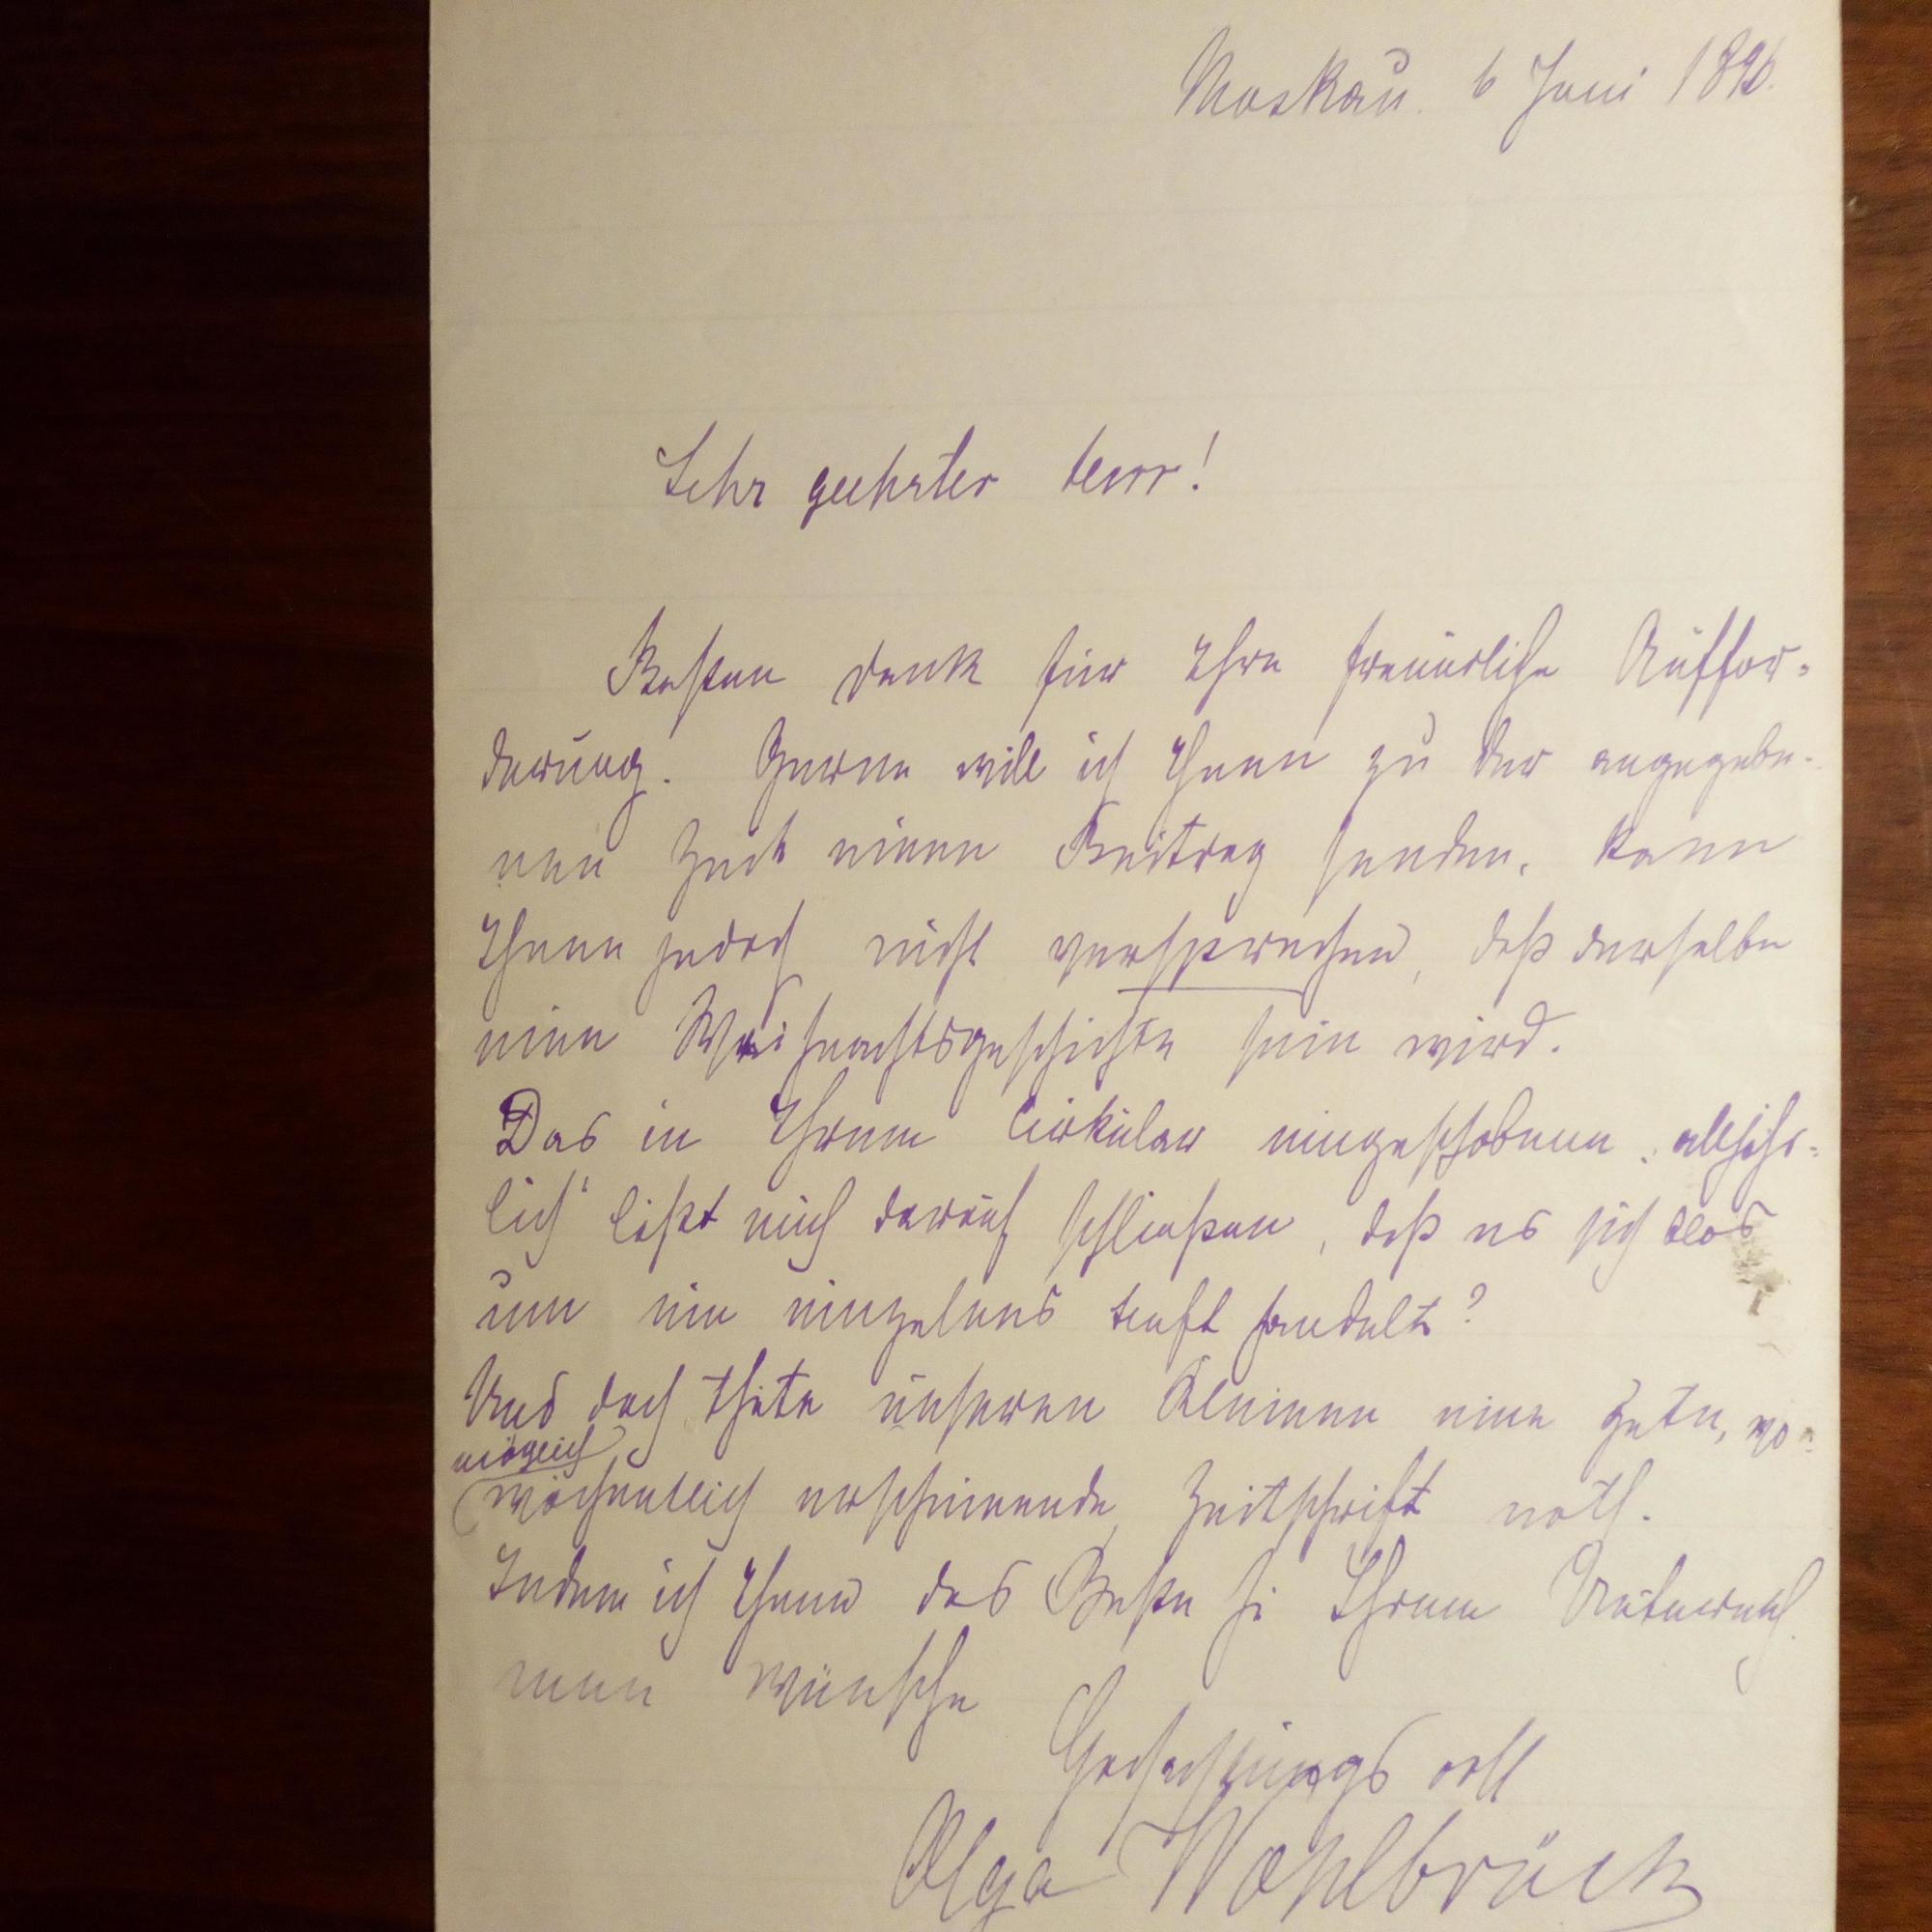 Moskau. 6 Juni 1890.
Sehr geehrter Herr!
Besten Dank für Ihre freundliche Auffor-
derung. Gerne will ich Ihnen zu der angegebe-
nen Zeit einen Beitrag senden, kann
Ihnen jedoch nicht versprechen, daß derselbe
eine Weihnachtsgeschichte sein wird.
Das in Ihrem Cirkular eingeschobene „alljähr-
lich“ läßt mich darauf schließen, daß es sich blos
um ein einzelnes Heft handelt?
Und doch thäte unseren Kleinen eine gute, wo-
möglich
wöchentlich erscheinende Zeitschrift noth.
Indem ich Ihnen das Beste zu Ihrem Unterneh-
men wünsche
Hochachtungsvoll
Olga Wohlbrück